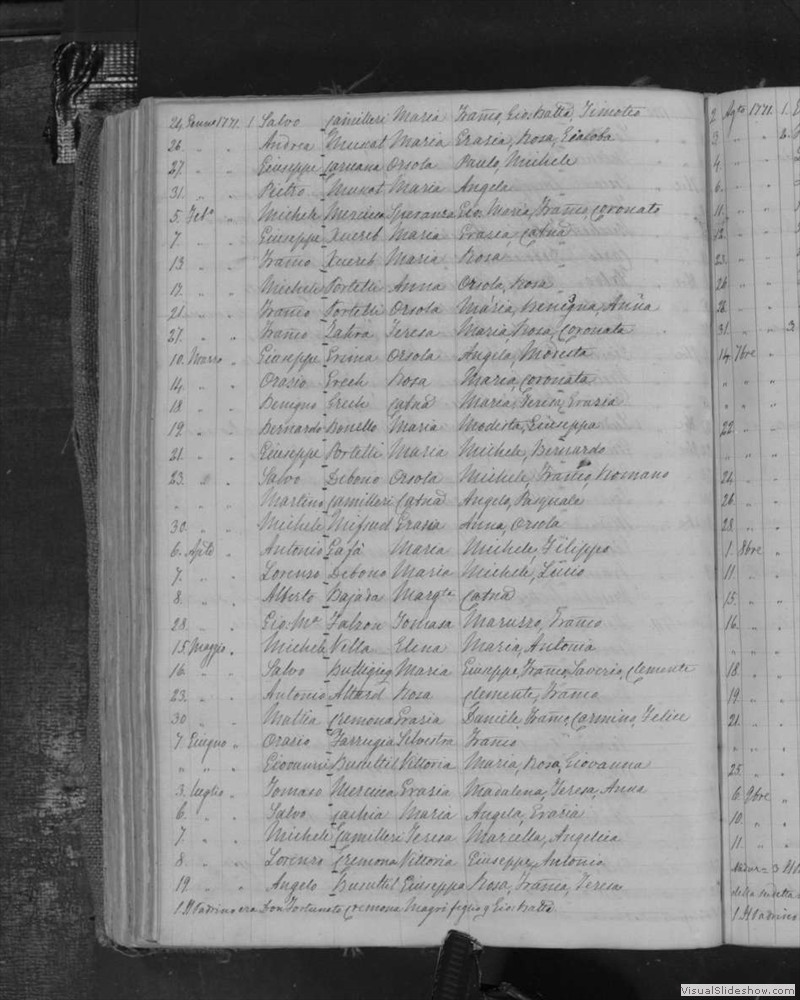 24 Genn° 1771. 1. Salvo Camilleri Maria Franco, Gio:Batta, Timoteo
26 " " Andrea Muscat Maria Grazia, Rosa, Giacoba
27. " " Giuseppe Caruana Orsola Paulo, Michele
31. " " Pietro Muscat Maria Angela
5. Feb° " Michele Mercieca Speranza Gio: Maria, Franco, Coronato
7. " " Giuseppe Xuereb Maria Grazia, Catna
13 " " Franco Xuereb Maria Rosa
17. " " Michele Portelli Anna Orsola, Rosa
21. " " Franco Portelli Orsola Maria, Benigna, Anna
27. " " Franco Zahra Teresa Maria, Rosa, Coronata
10. Marzo " Giuseppe Grima Orsola Angela, Modesta
14. " " Orazio Grech Rosa Maria, Coronata
18 " " Benigno Grech Catna Maria, Teresa, Grazia
19 " " Bernardo Bonello Maria Modesta, Giuseppa
21. " " Giuseppe Portelli Maria Michele, Bernardo
23. " " Salvo Debono Orsola Michele, Franco, Romano
" " " Martino Camilleri Catna Angelo, Pasquale
30. " " Michele Mifsud Grazia Anna, Orsola
6. Aple " Antonio Gafà Maria Michele, Filippo
7. " " Lorenzo Debono Maria Michele, Lucio
8. " " Alberto Bajada Margta Catna
28. " " Gio: Ma Falzon Tomasa Maruzzo, Franco
15 Maggio " Michele Vella Elena Maria, Antonia
16. " " Salvo Buttigieg Maria Giuseppe, Franco, Saverio, Clemente
23. " " Antonio Attard Rosa Clemente, Franco
30 " " Mattia Cremona Grazia Daniele, Franco, Carmino, Felice
7 Giugno " Orazio Farrugia Silvestra Franco
" " " Giovanni Busuttil Vittoria Maria, Rosa, Giovanna
3. Luglio " Tomaso Mercieca Grazia Madalena, Teresa, Anna
6. " " Salvo Cachia Maria Angela, Grazia
7 " " Michele Camilleri Teresa Marcella, Angelica
8 " " Lorenzo Cremona Vittoria Giuseppe, Antonio
19 " " Angelo Busuttil Giuseppa Rosa, Franca, Teresa
1. Il Padrino era Don Fortunato Cremona Magri figlio q Gio:Batta
2 Agto 1771. 1.
3. " " 2.
4. " "
6. " "
11. " "
12. " "
23. " "
26. " "
28. " "
31. " " 3.
14 7bre "
" " "
" " "
22. " "
" " "
24. " "
26. " "
28. " "
1. 8bre "
11. " "
15. " "
16. " "
" " "
18. " "
19 " "
21. " "
" " "
25. " "
6. 9bre "
10. " "
11. " "
della sudetta
1. Il Padrino
VisualSlideshow.com